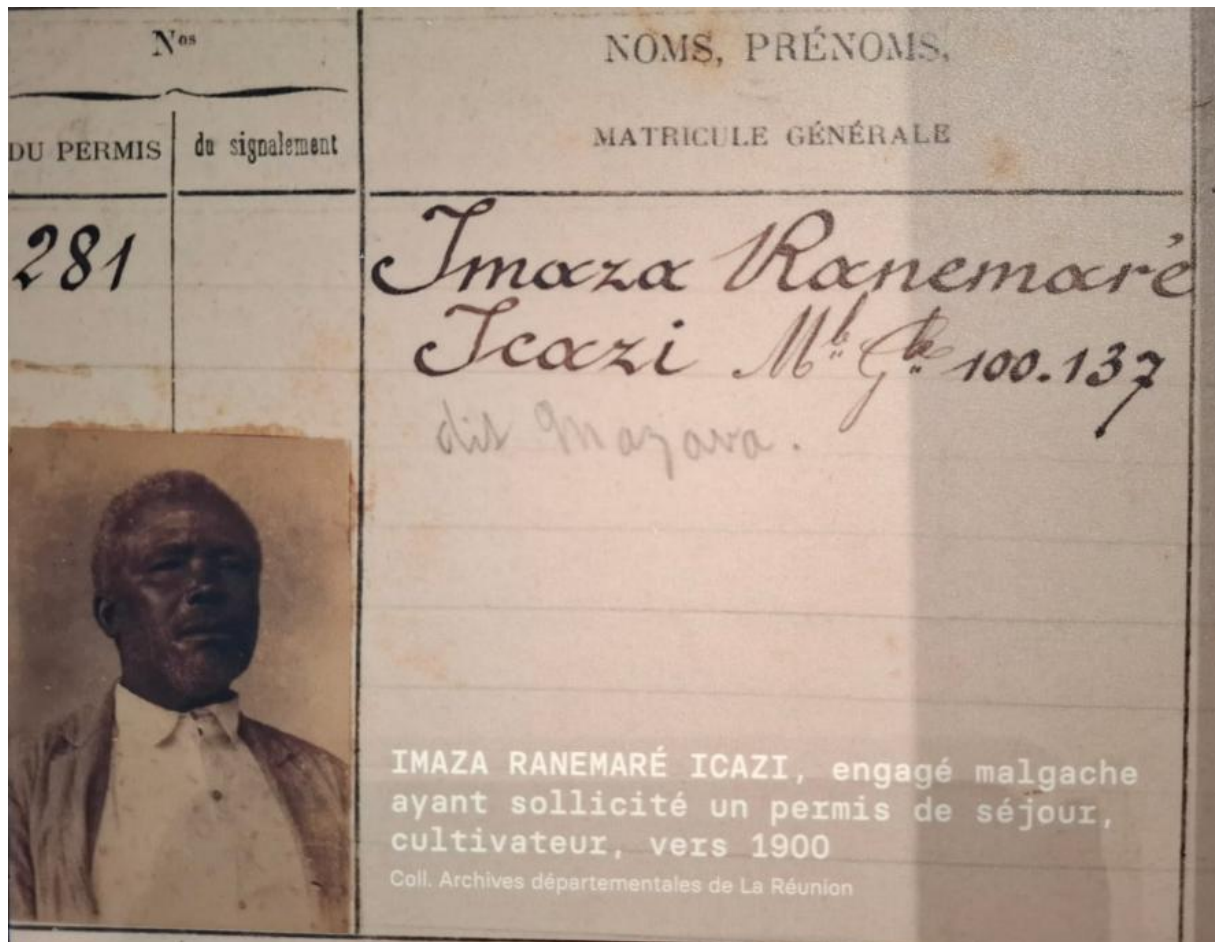 Nos
DU PERMIS
du signalement
NOMS, PRÉNOMS,
MATRICULE GÉNÉRALE
281
Imaza Ranemaré
Icazi Mle Gle 100.137
dit Mazava.
IMAZA RANEMARÉ ICAZI, engagé malgache
ayant sollicité un permis de séjour,
cultivateur, vers 1900
Coll. Archives départementales de La Réunion